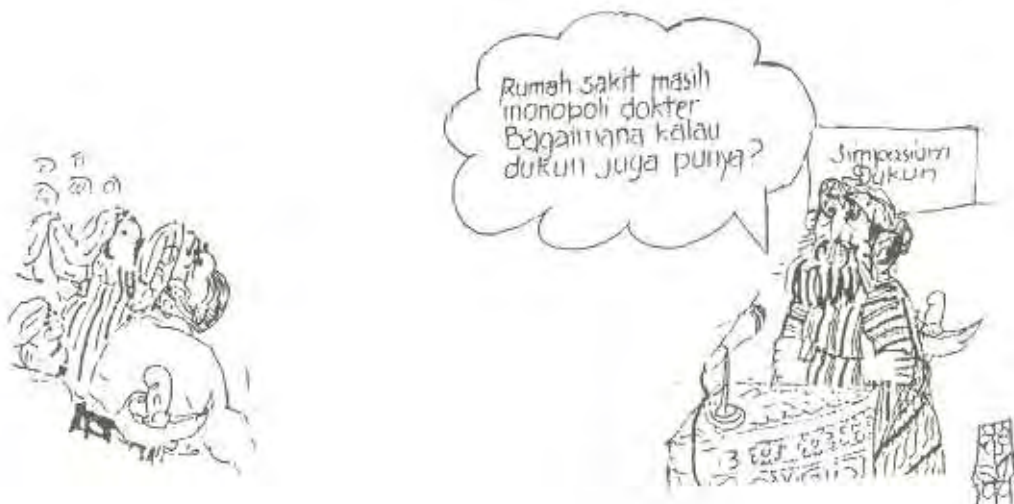 Rumah sakit masih
monopoli dokter
Bagaimana kalau
dukun juga punya?
Simposium
Dukun